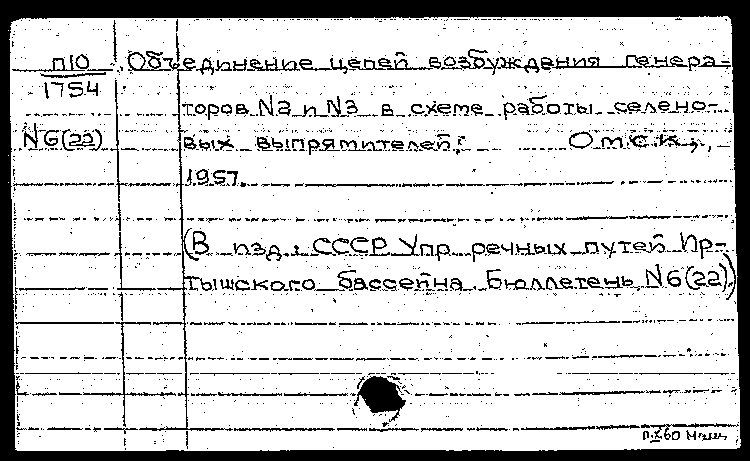 П10 Объединение цепей возбуждения генера-
1754
торов N2 и N3 в схеме работы селено-
N6(22) вых выпрямителей. Омск,
1957.
(В изд.: СССР Упр речных путей Ир-
тышского бассейна. Бюллетень N6(22))
п.X.60